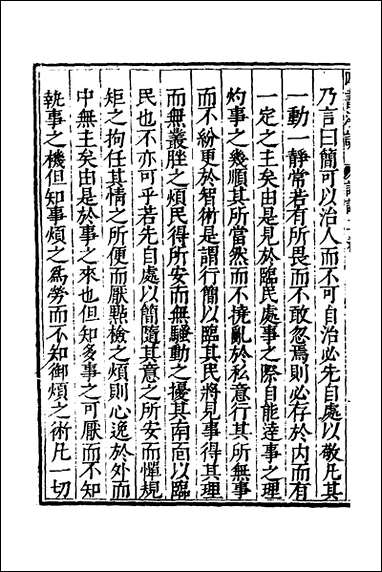 乃言曰簡可以治人而不可自治必先自處以敬凡其
一動一靜常若有所畏而不敢忽焉則必存於內而有
一定之主矣由是見於臨民處事之際自能達事之理
灼事之幾順其所當然而不撓亂於私意行其所無事
而不紛更於智術是謂行簡以臨其民將見事得其理
而無叢脞之煩民得所安而無騷動之擾其南面以臨
民也不亦可乎若先自處以簡隨其意之所安而憚規
矩之拘任其情之所便而厭點檢之煩則心逸於外而
中無主矣由是於事之來也但知多事之可厭而不知
執事之機但知事煩之為勞而不知御煩之術凡一切